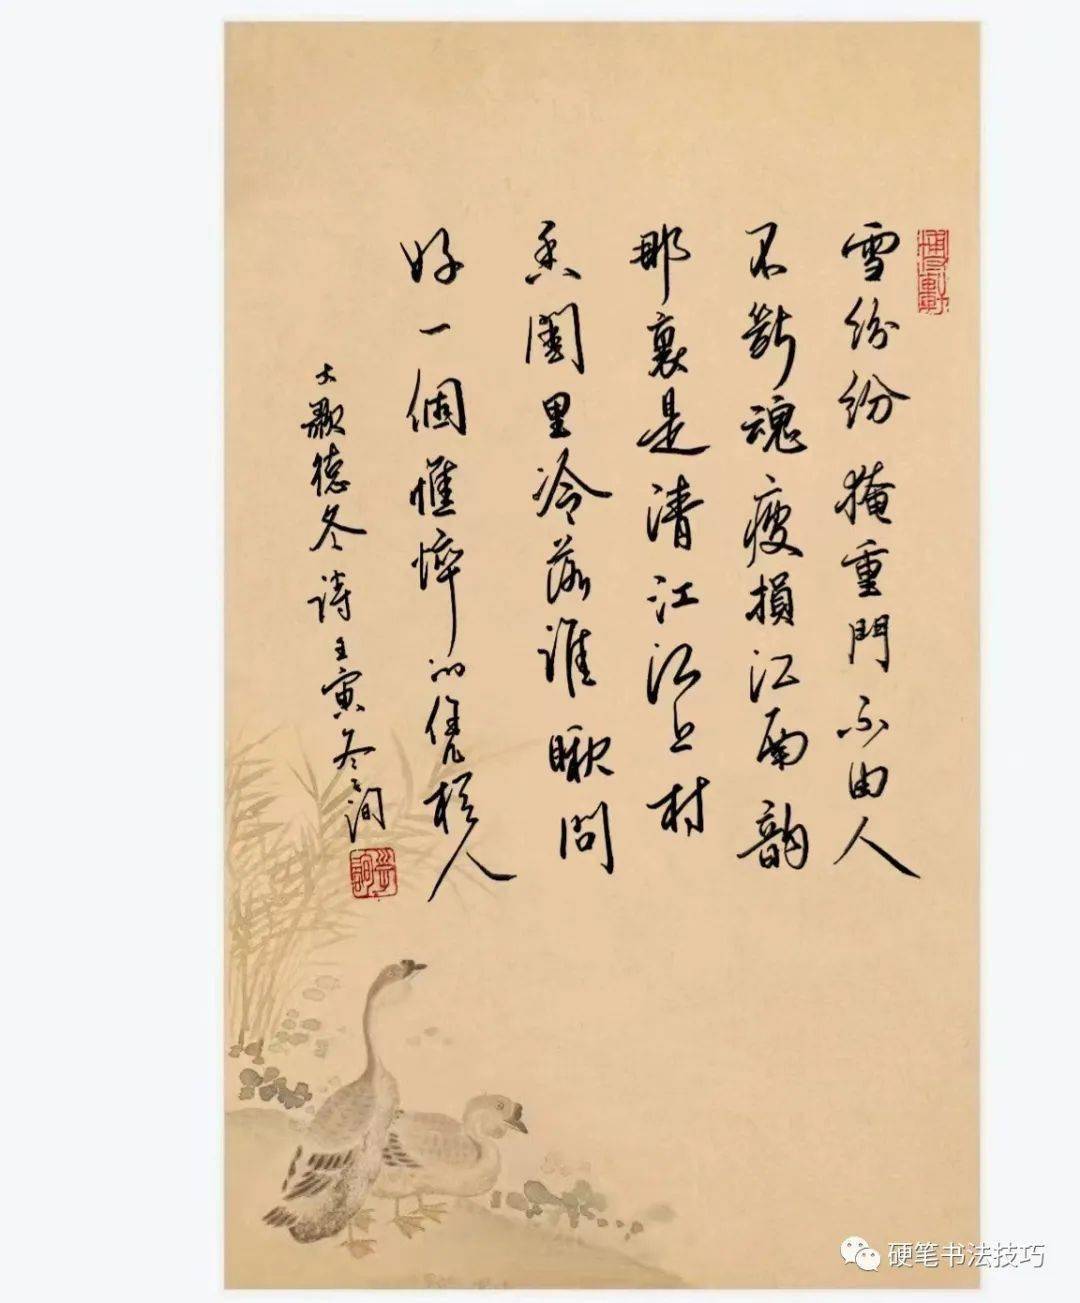 雪紛紛掩重門不由人
不斷魂瘦損江南韻
那裏是清江江上村
香閨里冷落誰瞅問
好一個憔悴的凭栏人
大歌德冬詩壬寅冬
硬笔书法技巧